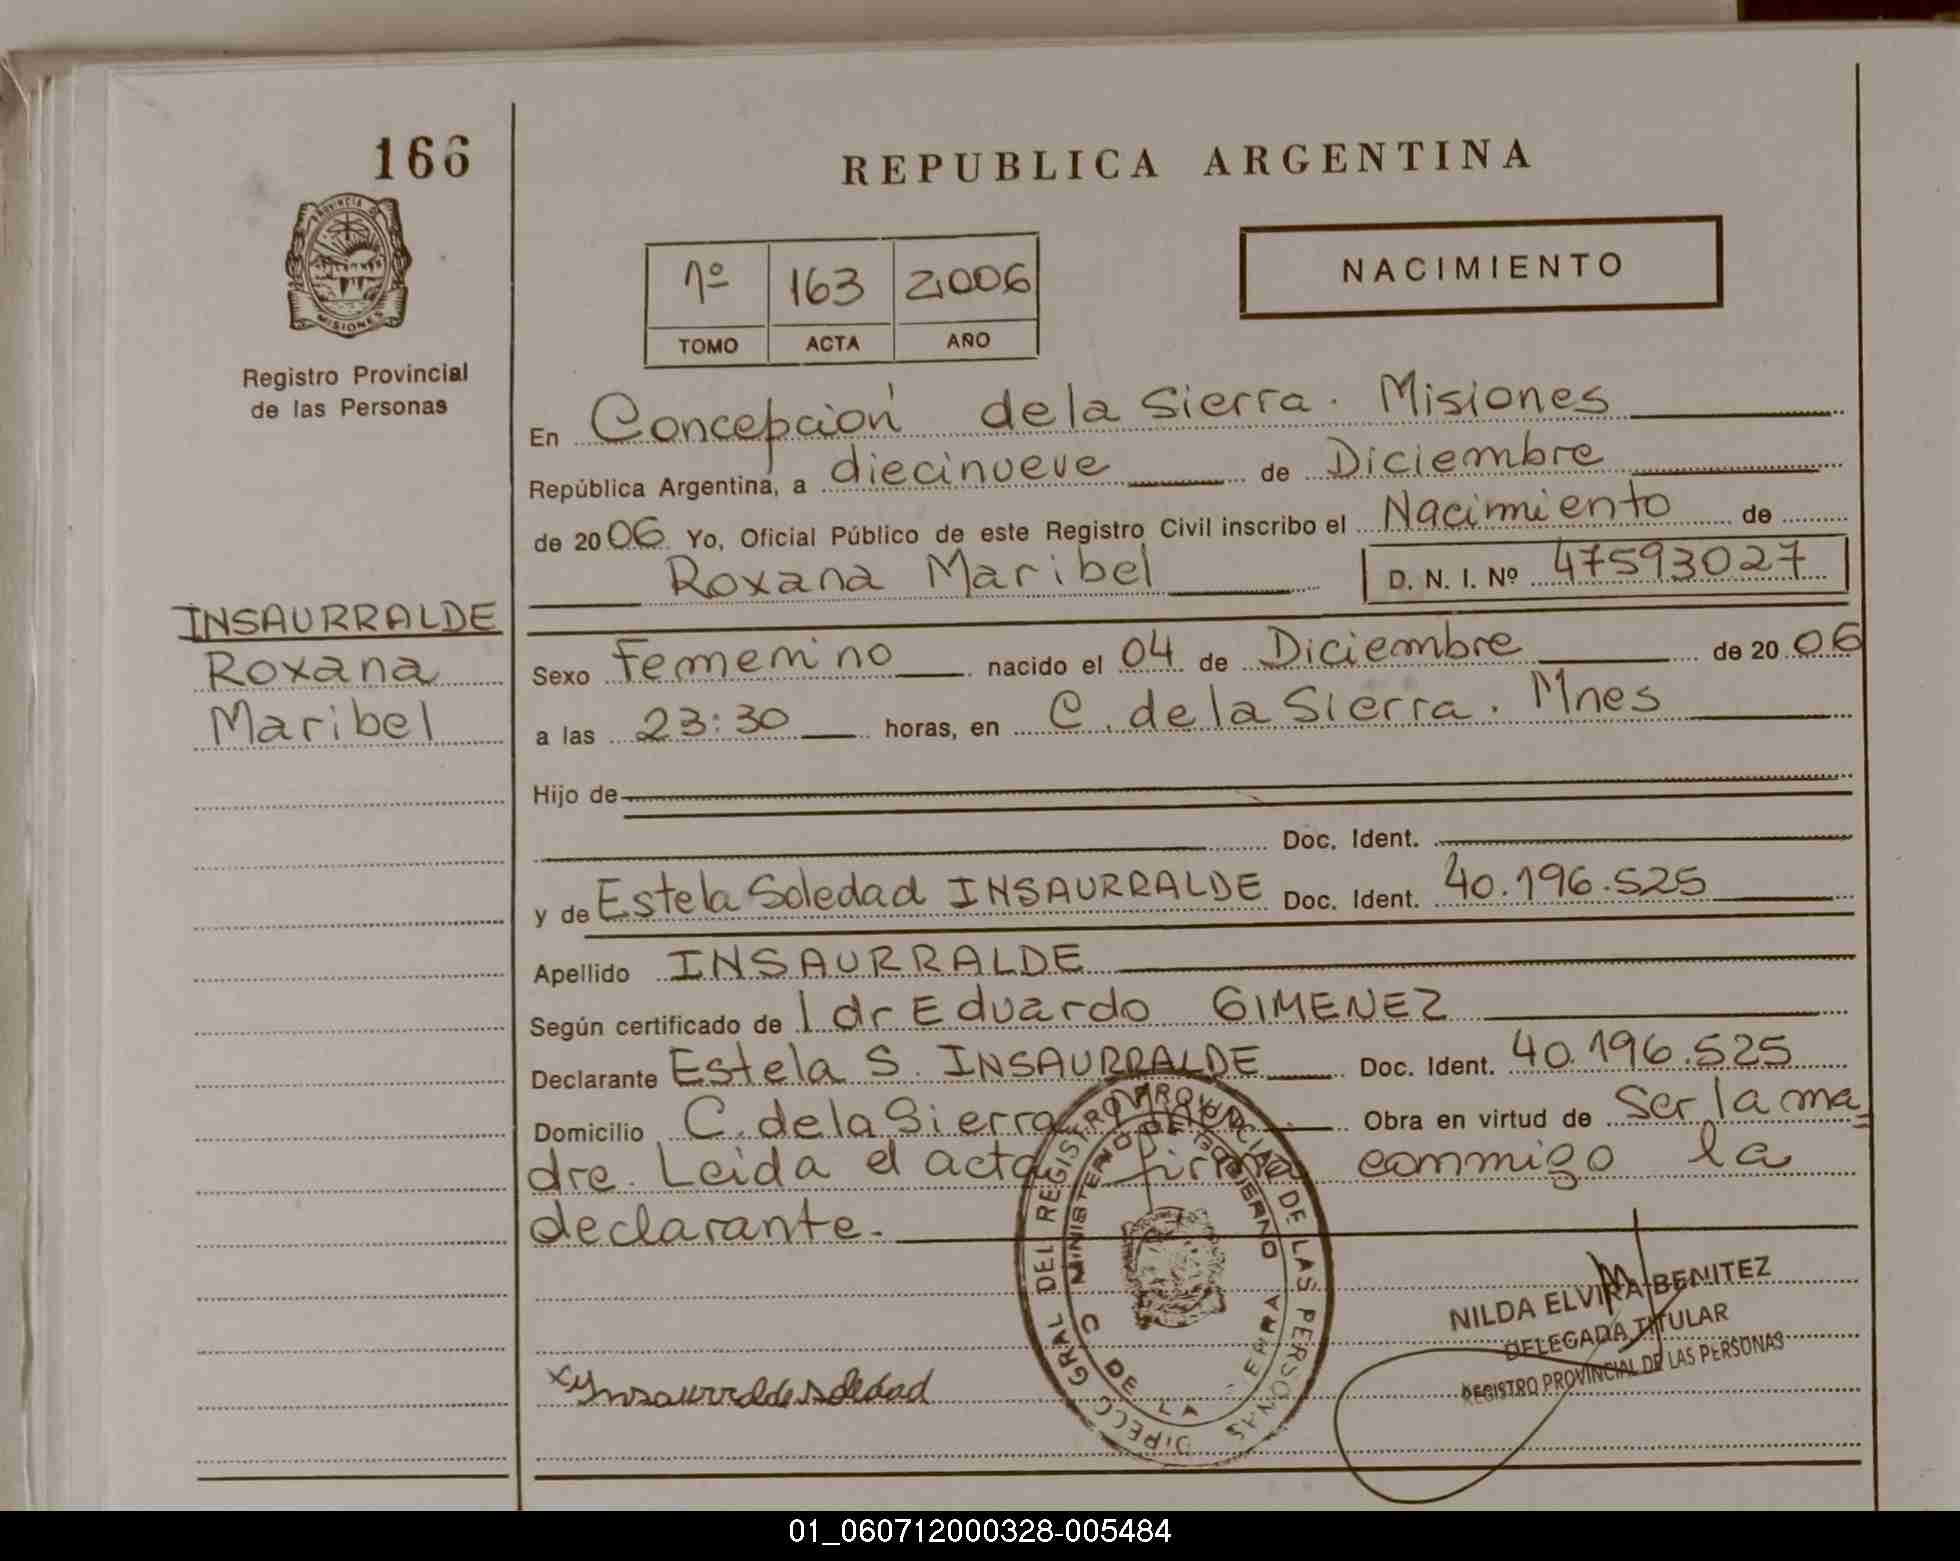 166
REPUBLICA ARGENTINA
PROVINCIA DE
MISIONES
Registro Provincial
de las Personas
1º 163 2006
TOMO ACTA AÑO
NACIMIENTO
En Concepción de la Sierra. Misiones
República Argentina, a diecinueve de Diciembre
de 2006 Yo, Oficial Público de este Registro Civil inscribo el Nacimiento de
Roxana Maribel D. N. I. Nº 47593027
INSAURRALDE
Roxana
Maribel
Sexo Femenino nacido el 04 de Diciembre de 2006
a las 23:30 horas, en C. de la Sierra. Mnes
Hijo de
Doc. Ident.
y de Estela Soledad INSAURRALDE Doc. Ident. 40.196.525
Apellido INSAURRALDE
Según certificado de l dr Eduardo GIMENEZ
Declarante Estela S. INSAURRALDE Doc. Ident. 40.196.525
Domicilio C. de la Sierra Obra en virtud de Ser la ma
dre. Leida el acta firma conmigo la
declarante.
DIRECC GRAL DEL REGISTRO PROVINCIAL DE LAS PERSONAS
MINISTERIO DE GOBIERNO
C DE LA SIERRA
Insaurralde Soledad
NILDA ELVIRA BENITEZ
DELEGADA TITULAR
REGISTRO PROVINCIAL DE LAS PERSONAS
01_060712000328-005484